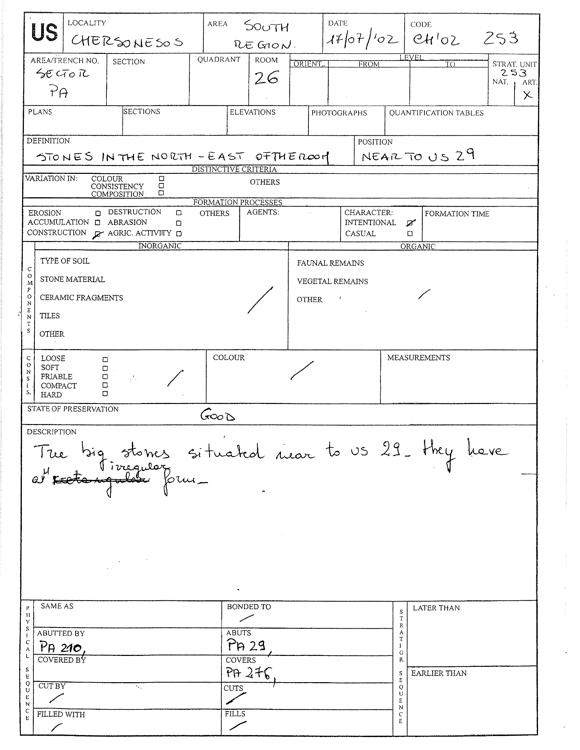 US
LOCALITY
CHERSONESOS
AREA SOUTH
REGION.
DATE
17/07/'02
CODE
CH'02 253
AREA/TRENCH NO.
SECTOR
PA
SECTION
QUADRANT
ROOM
26
LEVEL
ORIENT. FROM TO
STRAT. UNIT
253
NAT. ART.
X
PLANS
SECTIONS
ELEVATIONS
PHOTOGRAPHS
QUANTIFICATION TABLES
DEFINITION
STONES IN THE NORTH-EAST OF THE ROOM
POSITION
NEAR TO US 29
DISTINCTIVE CRITERIA
VARIATION IN: COLOUR
CONSISTENCY
COMPOSITION
OTHERS
FORMATION PROCESSES
EROSION DESTRUCTION
ACCUMULATION ABRASION
CONSTRUCTION AGRIC. ACTIVITY
OTHERS
AGENTS:
CHARACTER:
INTENTIONAL
CASUAL
FORMATION TIME
COMPONENTS
INORGANIC
TYPE OF SOIL
STONE MATERIAL
CERAMIC FRAGMENTS
TILES
OTHER
ORGANIC
FAUNAL REMAINS
VEGETAL REMAINS
OTHER
CONSIS.
LOOSE
SOFT
FRIABLE
COMPACT
HARD
COLOUR
MEASUREMENTS
STATE OF PRESERVATION
GOOD
DESCRIPTION
big stones situated near to US 29_ they have
irregular
rectangular form_
PHYSICAL SEQUENCE
SAME AS
BONDED TO
ABUTTED BY
PA 210,
ABUTS
PA 29,
COVERED BY
COVERS
PA 276,
CUT BY
CUTS
FILLED WITH
FILLS
STRATIGR. SEQUENCE
LATER THAN
EARLIER THAN